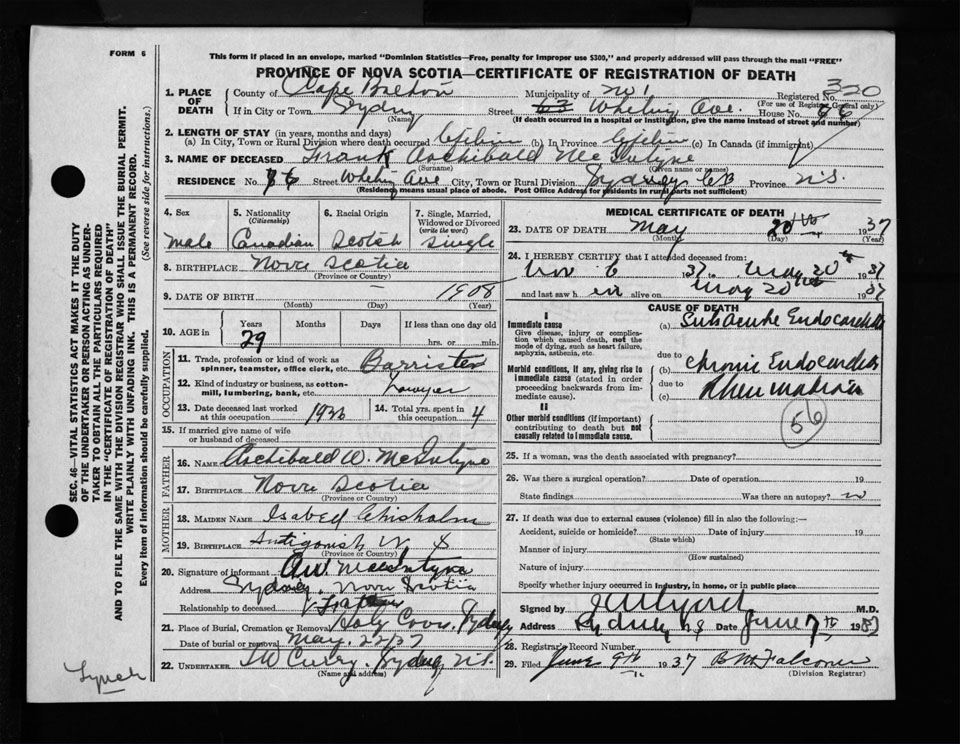 FORM 6
This form if placed in an envelope, marked "Dominion Statistics—Free, penalty for improper use $300," and properly addressed will pass through the mail "FREE"
PROVINCE OF NOVA SCOTIA—CERTIFICATE OF REGISTRATION OF DEATH
SEC. 46—VITAL STATISTICS ACT MAKES IT THE DUTY
OF THE UNDERTAKER OR PERSON ACTING AS UNDER-
TAKER TO OBTAIN ALL THE PARTICULARS REQUIRED
IN THE "CERTIFICATE OF REGISTRATION OF DEATH"
AND TO FILE THE SAME WITH THE DIVISION REGISTRAR WHO SHALL ISSUE THE BURIAL PERMIT.
WRITE PLAINLY WITH UNFADING INK. THIS IS A PERMANENT RECORD.
Every item of information should be carefully supplied. (See reverse side for instructions.)
1. PLACE OF DEATH
County of Cape Breton Municipality of No 1 Registered No. 320
(For use of Registrar General only)
If in City or Town Sydney Street Whitney Ave. House No.
(Name) (If death occurred in a hospital or institution, give the name instead of street and number)
2. LENGTH OF STAY (in years, months and days)
(a) In City, Town or Rural Division where death occurred Lifetime (b) In Province Lifetime (c) In Canada (if immigrant)
3. NAME OF DECEASED Frank Archibald McIntyre
(Surname) (Given name or names)
RESIDENCE No. Street Whitney Ave City, Town or Rural Division Sydney CB Province N.S.
(Residence means usual place of abode. Post Office Address for residents in rural parts not sufficient)
4. Sex
male
5. Nationality
(Citizenship)
Canadian
6. Racial Origin
Scotch
7. Single, Married, Widowed or Divorced
(write the word)
Single
8. BIRTHPLACE Nova Scotia
(Province or Country)
9. DATE OF BIRTH — 1908
(Month) (Day) (Year)
10. AGE in Years Months Days If less than one day old
29 hrs. or min.
OCCUPATION
11. Trade, profession or kind of work as
spinner, teamster, office clerk, etc. Barrister
12. Kind of industry or business, as cotton-
mill, lumbering, bank, etc. Lawyer
13. Date deceased last worked
at this occupation 1936
14. Total yrs. spent in
this occupation 4
15. If married give name of wife
or husband of deceased
FATHER
16. NAME Archibald W. McIntyre
17. BIRTHPLACE Nova Scotia
(Province or Country)
MOTHER
18. MAIDEN NAME Isabel Chisholm
19. BIRTHPLACE Antigonish N S
(Province or Country)
20. Signature of informant A.W. MacIntyre
Address Sydney, Nova Scotia
Relationship to deceased Father
21. Place of Burial, Cremation or Removal Holy Cross, Sydney
Date of burial or removal May 22/37
22. UNDERTAKER Curry, Sydney N.S.
(Name and address)
Lynch
MEDICAL CERTIFICATE OF DEATH
23. DATE OF DEATH May 20th 1937
(Month) (Day) (Year)
24. I HEREBY CERTIFY that I attended deceased from:
Nov 6 37 to May 20th 1937
and last saw him alive on May 20th 1937
CAUSE OF DEATH
I
Immediate cause
Give disease, injury or complication which caused death, not the mode of dying, such as heart failure, asphyxia, asthenia, etc.
(a) Subacute Endocarditis
due to
Morbid conditions, if any, giving rise to immediate cause (stated in order proceeding backwards from immediate cause).
(b) Chronic Endocarditis
due to
(c) Rheumatism
II
Other morbid conditions (if important) contributing to death but not causally related to immediate cause.
56
25. If a woman, was the death associated with pregnancy?
26. Was there a surgical operation? Date of operation 19
State findings Was there an autopsy? no
27. If death was due to external causes (violence) fill in also the following:—
Accident, suicide or homicide? Date of injury 19
(State which)
Manner of injury
(How sustained)
Nature of injury
Specify whether injury occurred in industry, in home, or in public place
Signed by M.D.
Address Sydney NS Date June 7th 1937
28. Registrar's Record Number
29. Filed June 9th 1937 Falconer
(Division Registrar)